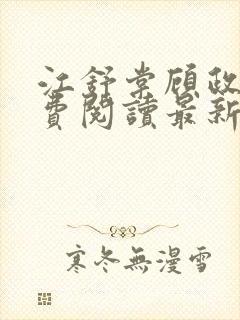 江舒棠顧政
費閱讀最新
寒冬無漫雪